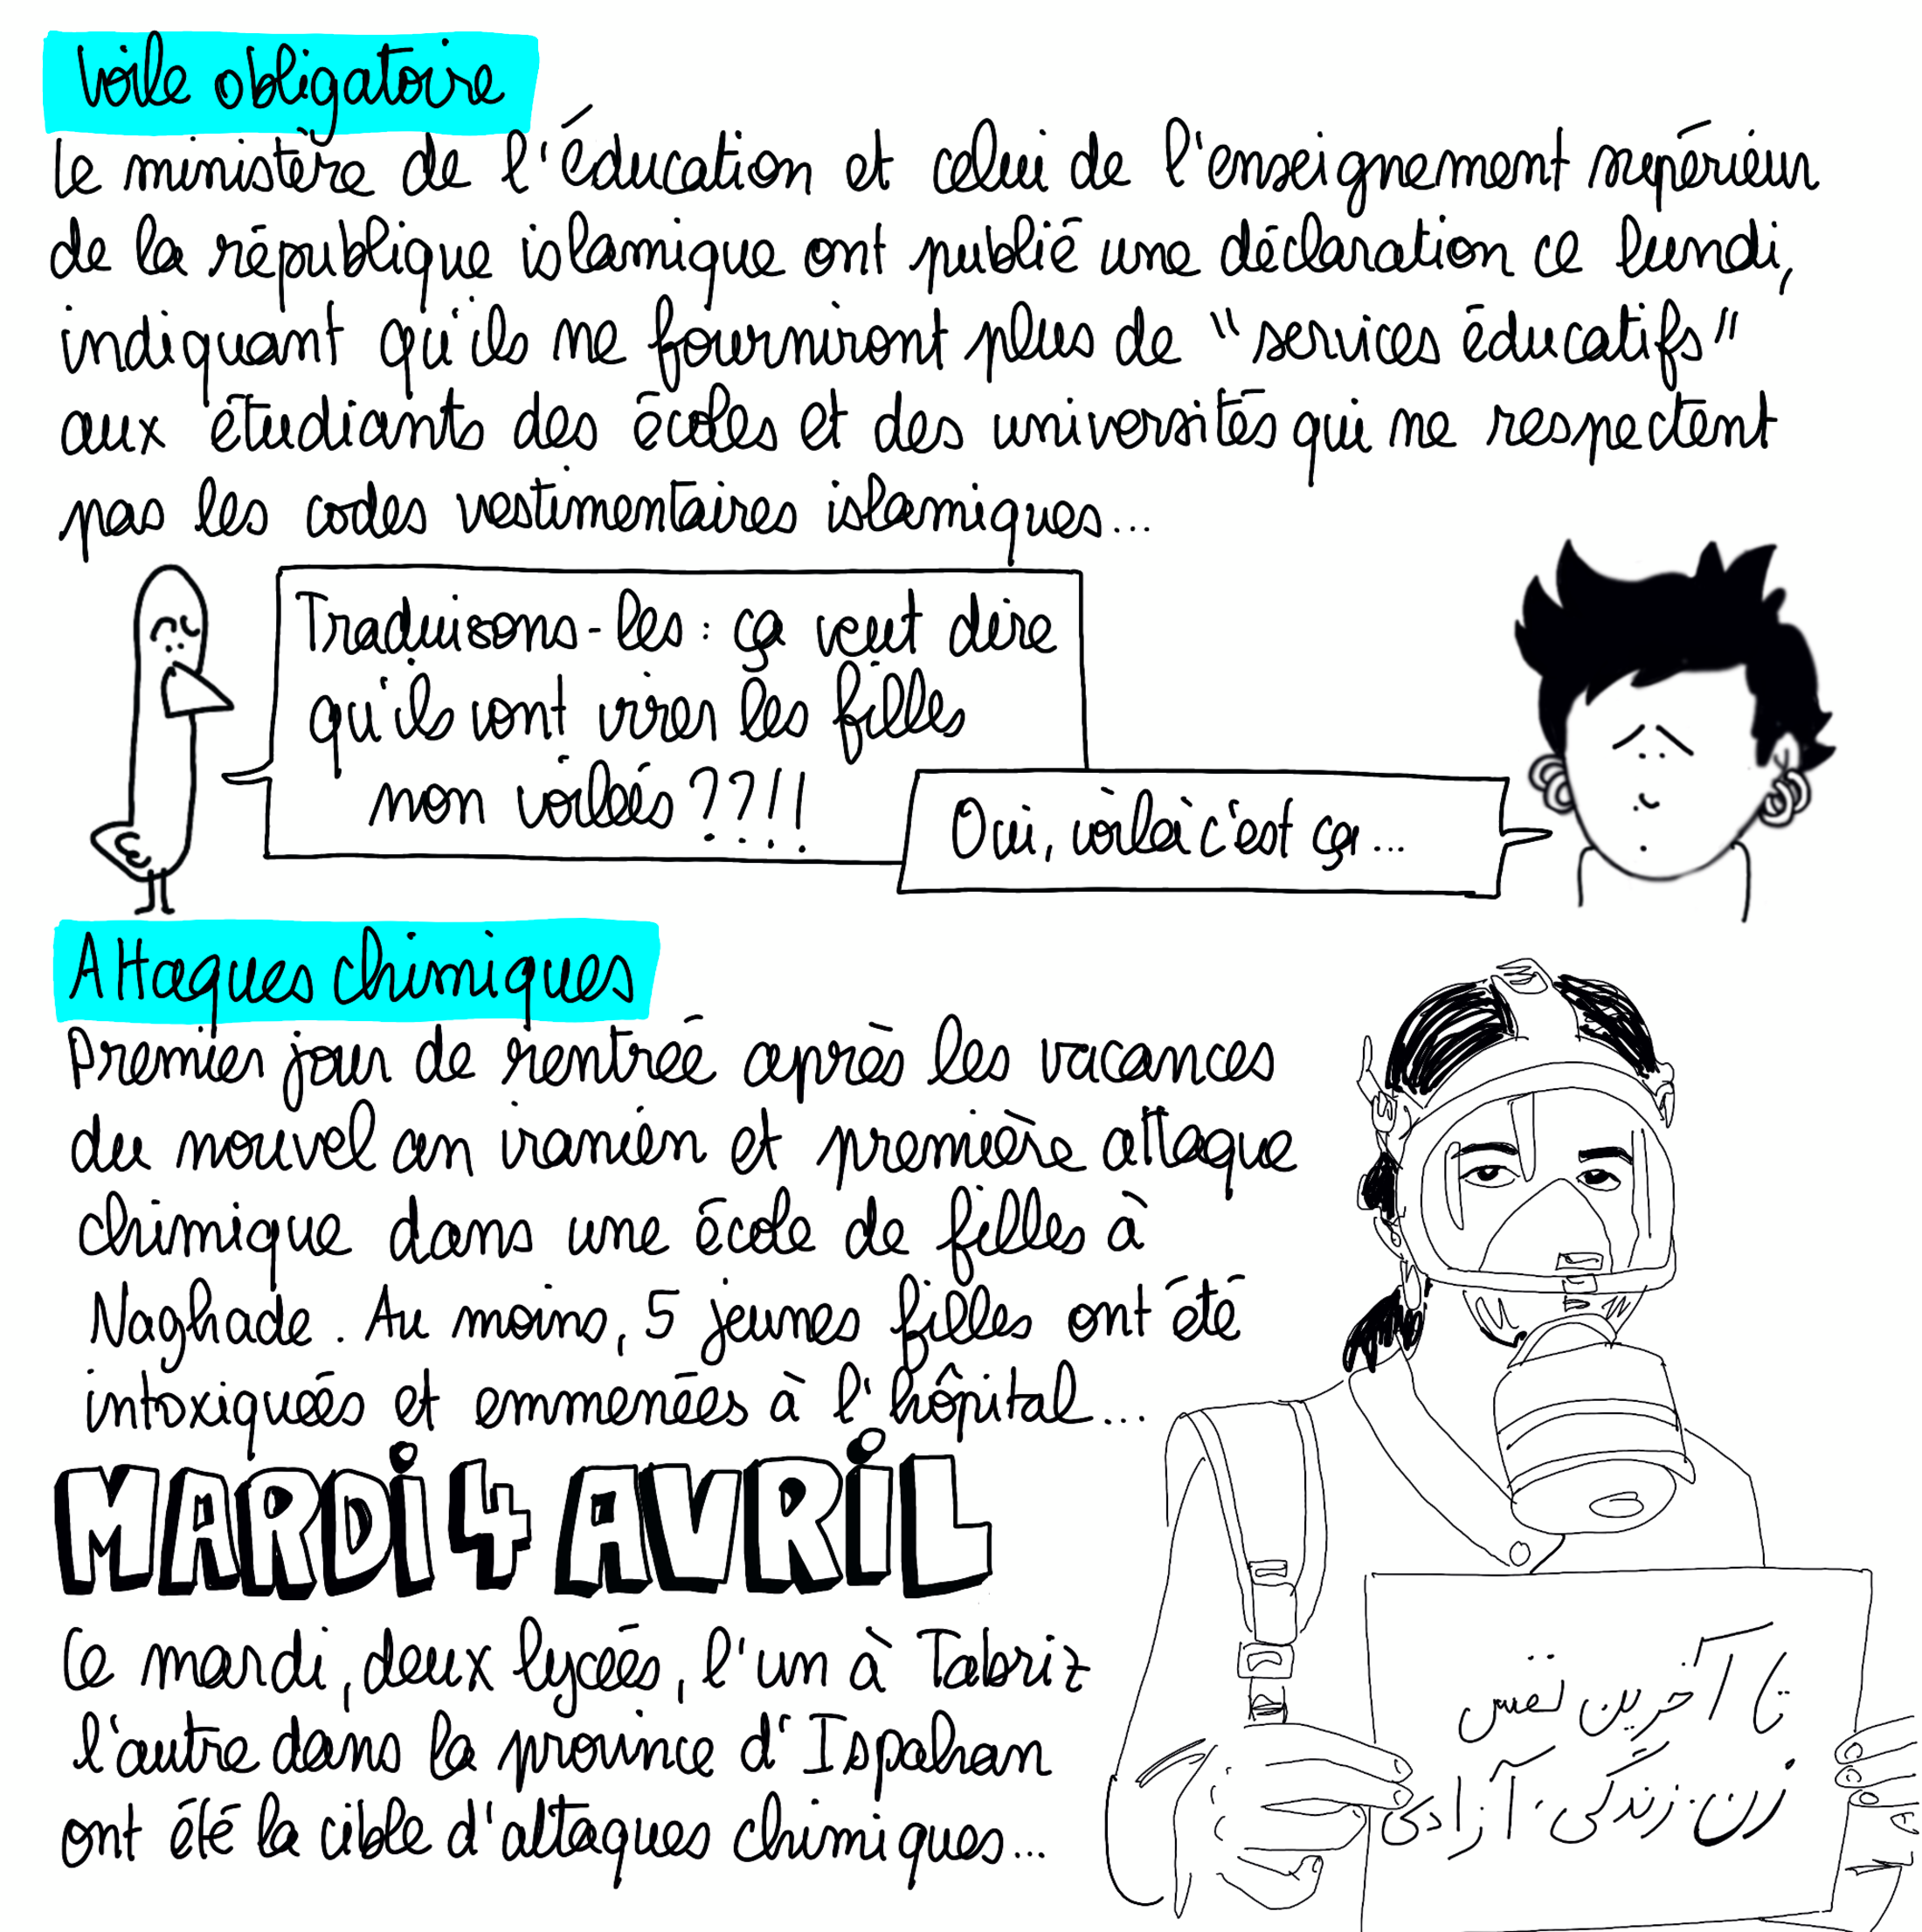 Voile obligatoire
Le ministère de l'éducation et celui de l'enseignement supérieur
de la république islamique ont publié une déclaration ce lundi,
indiquant qu'ils ne fourniront plus de "services éducatifs"
aux étudiants des écoles et des universités qui ne respectent
pas les codes vestimentaires islamiques...
Traduisons-les : ça veut dire
qu'ils vont virer les filles
non voilées ??!!
Oui, voilà c'est ça...
Attaques chimiques
Premier jour de rentrée après les vacances
du nouvel an iranien et première attaque
chimique dans une école de filles à
Naghade. Au moins, 5 jeunes filles ont été
intoxiquées et emmenées à l'hôpital...
MARDI 4 AVRIL
Ce mardi, deux lycées, l'un à Tabriz
l'autre dans la province d'Ispahan
ont été la cible d'attaques chimiques...
تا آخرین نفس
زن. زندگی. آزادی